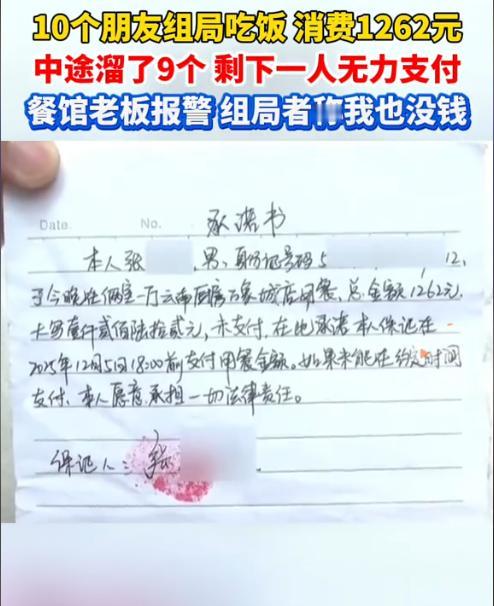 10个朋友组局吃饭 消费1262元
中途溜了9个 剩下一人无力支付
餐馆老板报警 组局者称我也没钱
Date.
No.
承诺书
本人张 男,身份证号码5 12,
于今晚在 云南 万象城店用餐,总金额1262元,
大写壹仟贰佰陆拾贰元,未支付,在此承诺本人保证在
2025年12月5日18:00前支付用餐金额。如果未能在约定时间
支付、本人愿意承担一切法律责任。
保证人:张